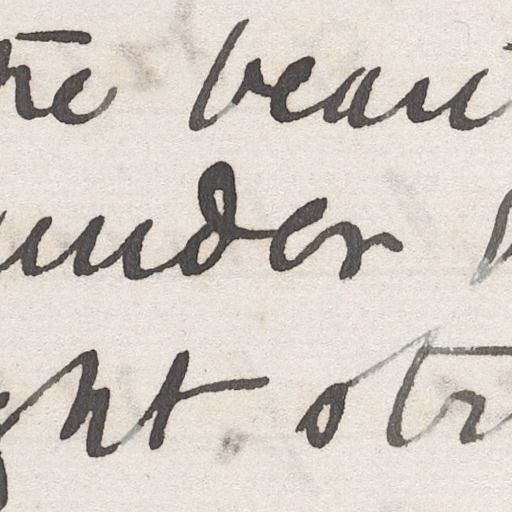 the beau
under
ght str